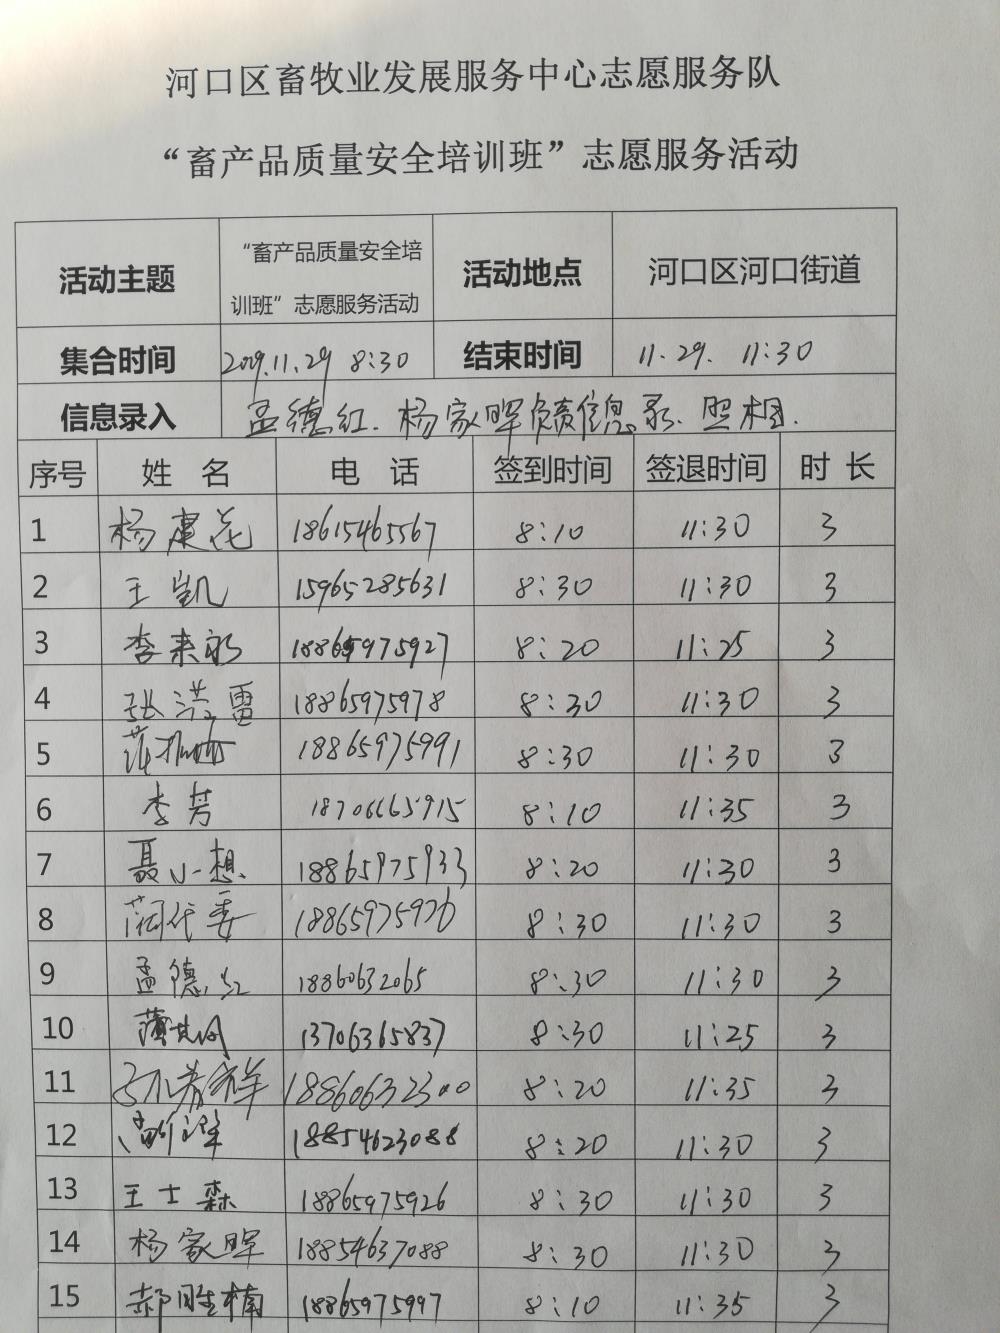 河口区畜牧业发展服务中心志愿服务队
“畜产品质量安全培训班”志愿服务活动
活动主题 “畜产品质量安全培训班”志愿服务活动 活动地点 河口区河口街道
集合时间 2019.11.29 8:30 结束时间 11.29. 11:30
信息录入 孟德红.杨家晖负责信息录.照相.
序号 姓 名 电 话 签到时间 签退时间 时 长
1 杨建花 18615465567 8:10 11:30 3
2 王凯 15965285631 8:30 11:30 3
3 李来永 18865975927 8:20 11:25 3
4 张洪雷 18865975978 8:30 11:30 3
5 18865975991 8:30 11:30 3
6 李芳 18706665915 8:10 11:35 3
7 聂小想 18865975933 8:20 11:30 3
8 18865975976 8:30 11:30 3
9 孟德红 18860632065 8:30 11:30 3
10 13706365837 8:30 11:25 3
11 18860632300 8:20 11:35 3
12 18854623088 8:20 11:30 3
13 王士森 18865975926 8:30 11:30 3
14 杨家晖 18854637088 8:30 11:30 3
15 郝胜楠 18865975997 8:10 11:35 3